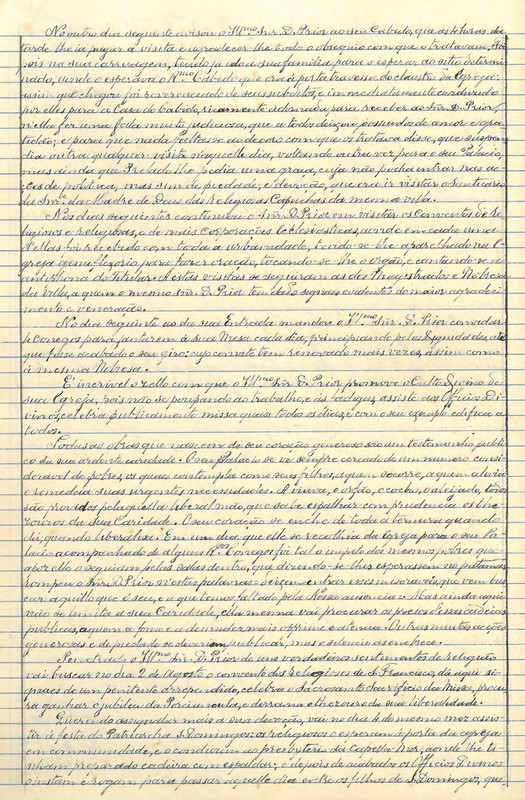 No outro dia seguinte avisou o Ill.mo Snr. D. Prior ao seu Cabido, que as 4 horas da
tarde lhe ia pagar a visita e agradecer-lhe todo o obsequio com que o tratavam. Foi
pois na sua carruagem, tendo ido a sua familia para o esperar ao sitio determi-
nado, aonde o esperava o R.mo Cabido que era á porta travessa do claustro da Egreja:
assim que chegou foi reverenciado de seus subditos, e immediatamente conduzido
por elles para a Casa do Cabido, ricamente adornada para receber ao Snr. D. Prior,
n'ella fez uma falla muito judiciosa, que a todos deixou possuidos de amor e gra-
tidão; e para que nada faltasse ao decoro com que os tratava disse, que suspen-
dia outra qualquer visita n'aquelle dia, voltando outra vez para o seu Palacio,
mas ainda que Prelado lhe pedia uma graça, cuja não podia entrar nas ac-
ções de politica, mas sim de piedade, e devoção, que era ir visitar o Sanctuario
da Snr.a da Madre de Deus das Religiosas Capuchas da mesma villa.
Nos dias seguintes continuou o Snr. D. Prior em visitar os Conventos de Re-
ligiosos e religiosas, e de mais corporações Ecclesiasticas, aonde em cada uma
d'ellas foi recebido com toda a urbanidade, tendo-se-lhe apparelhado na E-
greja genuflexorio para fazer oração, tocando-se-lhe o orgão, e cantando-se a
antiphona do Titular. A estas visitas se seguiram as dos Magistrados e Nobresa
da villa, a quem o mesmo Snr. D. Prior tem dado signaes evidentes do maior agradeci-
mento e veneração.
No dia seguinte ao da sua Entrada mandou o Ill.mo Snr. D. Prior convidar
4 conegos para jantarem á sua Mesa cada dia, principiando pelas Dignidades, até
que fosse acabado o seu giro: cujo convite tem renovado mais vezes, assim como
á mesma Nobresa.
É incrivel o zello com que o Ill.mo Snr. D. Prior promove o Culto Divino de
sua Egreja, pois não se poupando ao trabalho, e ás fadigas, assiste aos Officios Di-
vinos, celebra publicamente missa quasi todos os dias, e com o seu exemplo edifica a
todos.
Todas as obras que nascem do seu coração generoso são um testemunho publi-
co da sua ardente caridade. O seu Palacio se vê sempre cercado de um numero consi-
deravel de pobres, os quaes contempla como seus filhos, a quem soccorre, a quem allivia
e remedeia suas urgentes necessidades. A viuva, o orfão, o cocho, o aleijado, todos
são providos pela quella liberal mão, que sabe espalhar com prudencia os the-
zouros da sua Caridade. O seu coração se enche de toda a ternura quando
dá, quando liberalisa. Em um dia, que elle se recolhia da Egreja para o seu Pa-
lacio acompanhado de alguns R.dos Conegos foi tal o impeto dos mesmos pobres que
abos ello o seguiam pelas sallas dentro, que dizendo-se-lhes esperassem no patamar
rompeu o Snr. D. Prior n'estas palavras - deixem entrar esses miseraveis, que vem bus-
car aquillo que é seu, e que temos faltado pela Nossa ausencia. - Mas ainda aqui
não se limita a sua Caridade, ella mesma vai procurar os presos d'essas cadeias
publicas, a quem a fome e a denudez mais opprime e atenua. Outras muitas acções
generosas e de piedade se deveriam publicar, mas o silencio as encobre.
Penetrado o Ill.mo Snr. D. Prior de uns verdadeiros sentimentos de religião
vai buscar no dia 2 de Agosto o convento dos Religiosos de S. Francisco, dá aqui si-
gnaes de um penitente arrependido, celebra o Sacrosanto Sacrificio da Missa, procu-
ra ganhar o jubileu da Porciuncula, e derrama o thezouro da sua liberalidade.
Querendo assignalar mais a sua devoção, vai no dia 4 do mesmo mez assis-
tir á festa do Patriarcha S. Domingos: os religiosos o esperam á porta da egreja
em communidade, e o conduzem ao presbiterio da Capella-Mor, aonde lhe ti-
nham preparado cadeira com espaldar; e depois de acabados os Officios Divinos
o instam e rogam para passar aquelle dia entre os filhos de S. Domingos, que